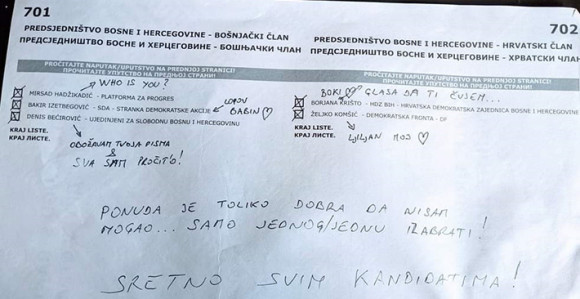 701
PREDSJEDNIŠTVO BOSNE I HERCEGOVINE - BOŠNJAČKI ČLAN
ПРЕДСЈЕДНИШТВО БОСНЕ И ХЕРЦЕГОВИНЕ - БОШЊАЧКИ ЧЛАН
PROČITAJTE NAPUTAK/UPUTSTVO NA PREDNJOJ STRANICI!
ПРОЧИТАЈТЕ УПУТСТВО НА ПРЕДЊОЈ СТРАНИ!
WHO IS YOU?
MIRSAD HADŽIKADIĆ - PLATFORMA ZA PROGRES
BAKIR IZETBEGOVIĆ - SDA - STRANKA DEMOKRATSKE AKCIJE
BABIN ♡
DENIS BEĆIROVIĆ - UJEDINJENI ZA SLOBODNU BOSNU I HERCEGOVINU
KRAJ LISTE.
КРАЈ ЛИСТЕ.
OBOŽAVAM TVOJA PISMA
&
SVA SAM PROČIT'O!
702
PREDSJEDNIŠTVO BOSNE I HERCEGOVINE - HRVATSKI ČLAN
ПРЕДСЈЕДНИШТВО БОСНЕ И ХЕРЦЕГОВИНЕ - ХРВАТСКИ ЧЛАН
PROČITAJTE NAPUTAK/UPUTSTVO NA PREDNJOJ STRANICI!
ПРОЧИТАЈТЕ УПУТСТВО НА ПРЕДЊОЈ СТРАНИ!
BOKI ♡ GLASA DA TI ČUJEM...
BORJANA KRIŠTO - HDZ BIH - HRVATSKA DEMOKRATSKA ZAJEDNICA BOSNE I HERCEGOVINE
ŽELJKO KOMŠIĆ - DEMOKRATSKA FRONTA - DF
KRAJ LISTE.
КРАЈ ЛИСТЕ.
LJILJAN MOJ ♡
PONUDA JE TOLIKO DOBRA DA NISAM
MOGAO... SAMO JEDNOG/JEDNU IZABRATI!
SRETNO SVIM KANDIDATIMA!